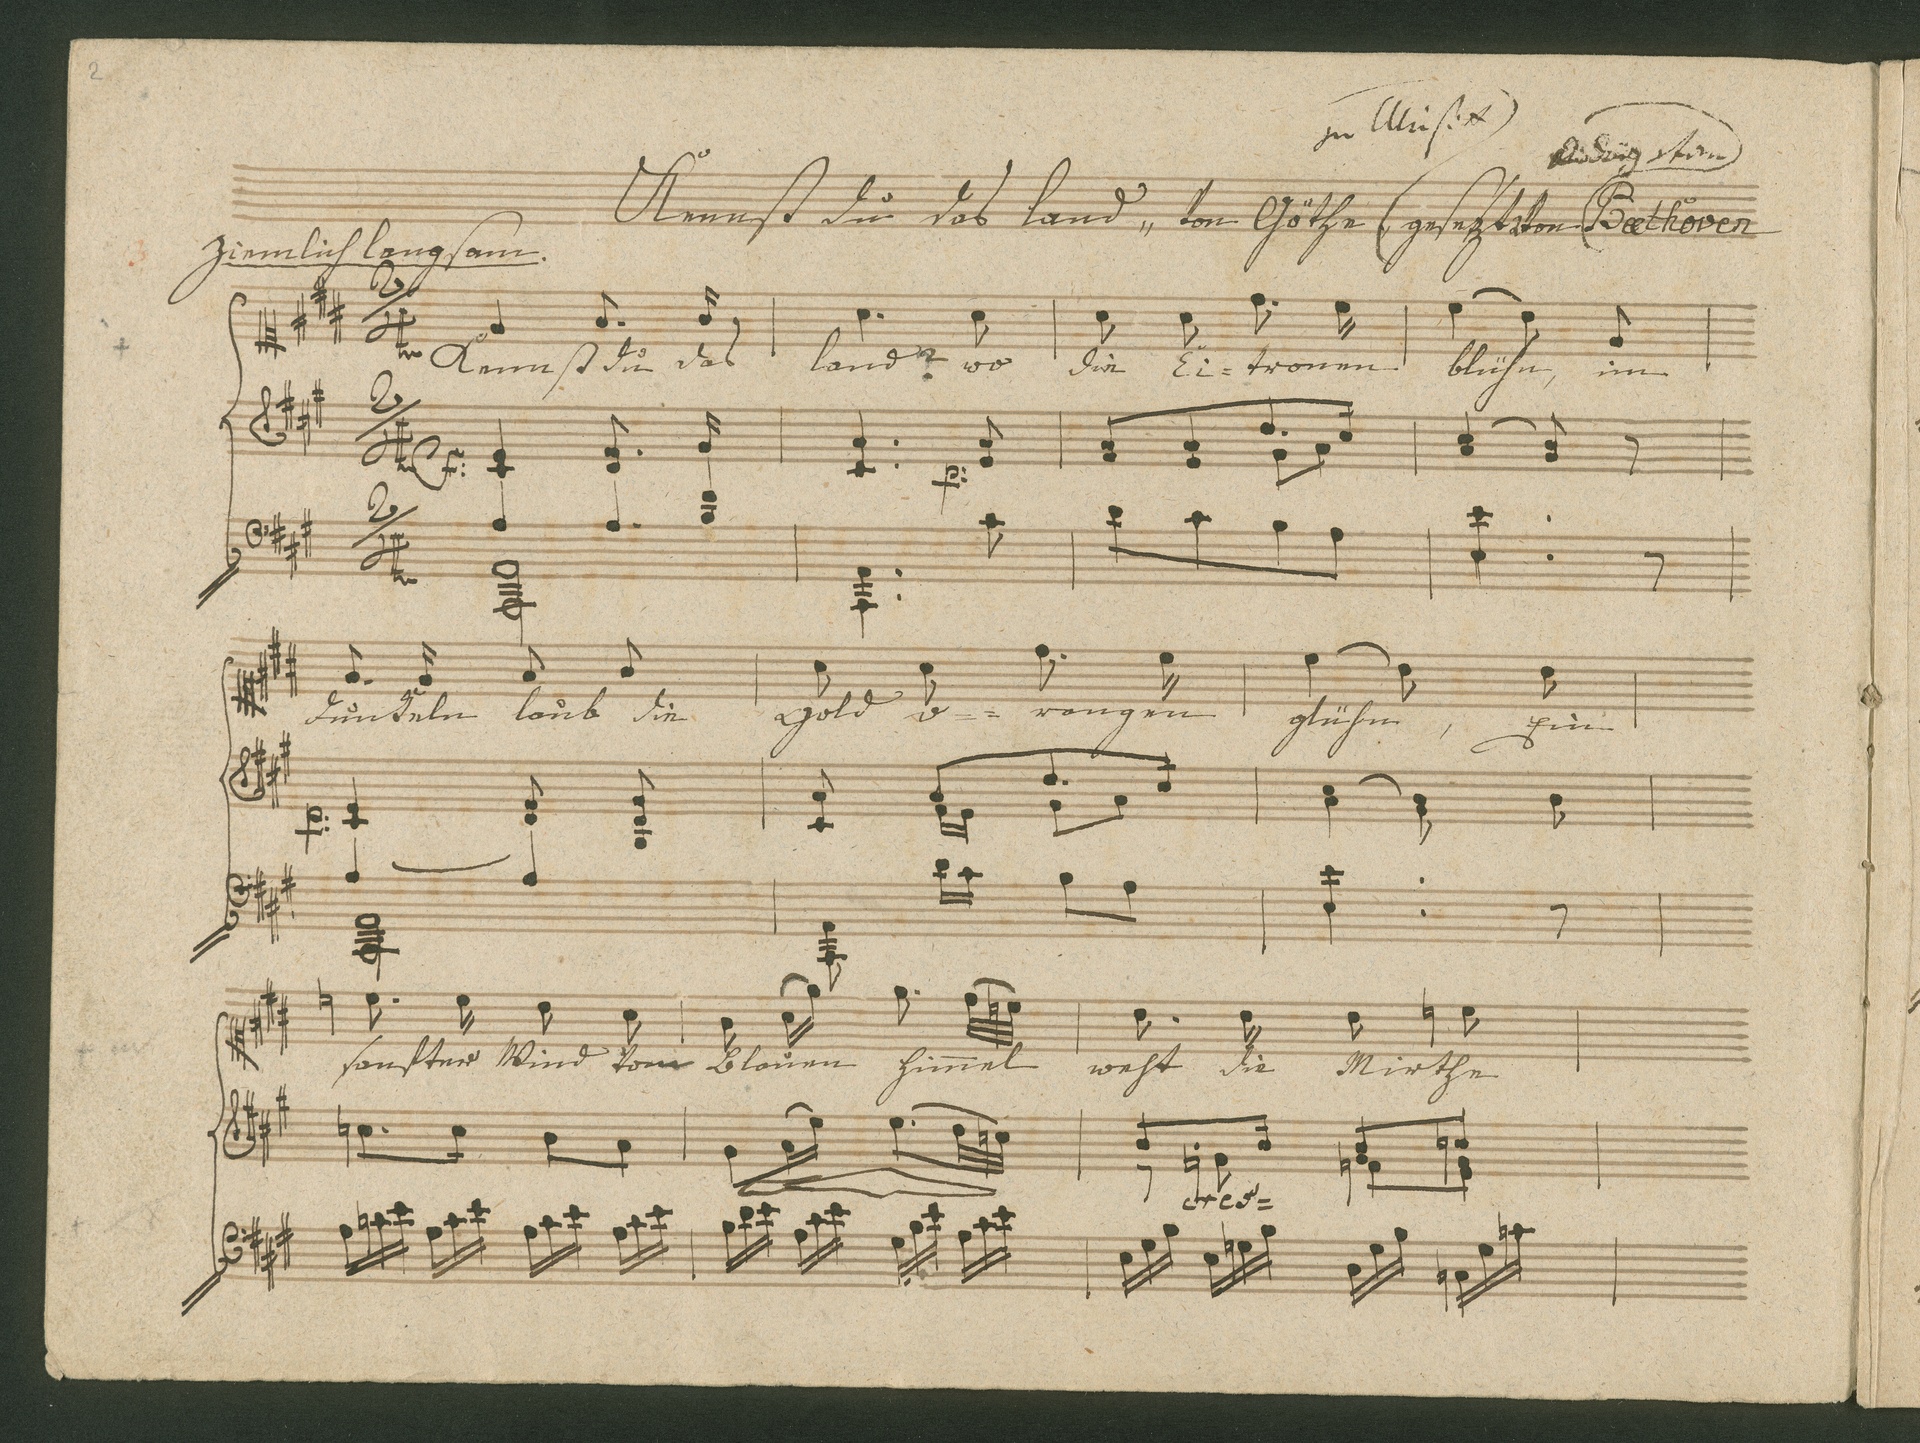 2
in Musik)
Ludwig van
Kennst du das land„ von Göthe (gesetzt von Beethoven
Ziemlich langsam.
2/4
Kennst du das land? wo die Ci=tronen blühn, im
2/4 f: p:
2/4
dunkeln laub die Gold o== rangen glühn, ein
p:
sanfter Wind vom blauen himmel weht die Mirthe
cres=